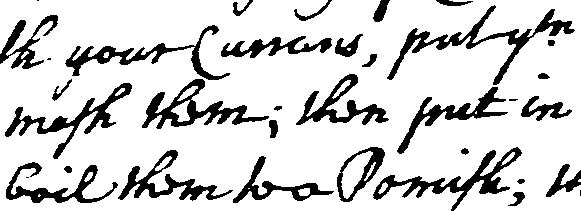 your Currans, put ym
mash them; then put in
boil them to a Pomish;